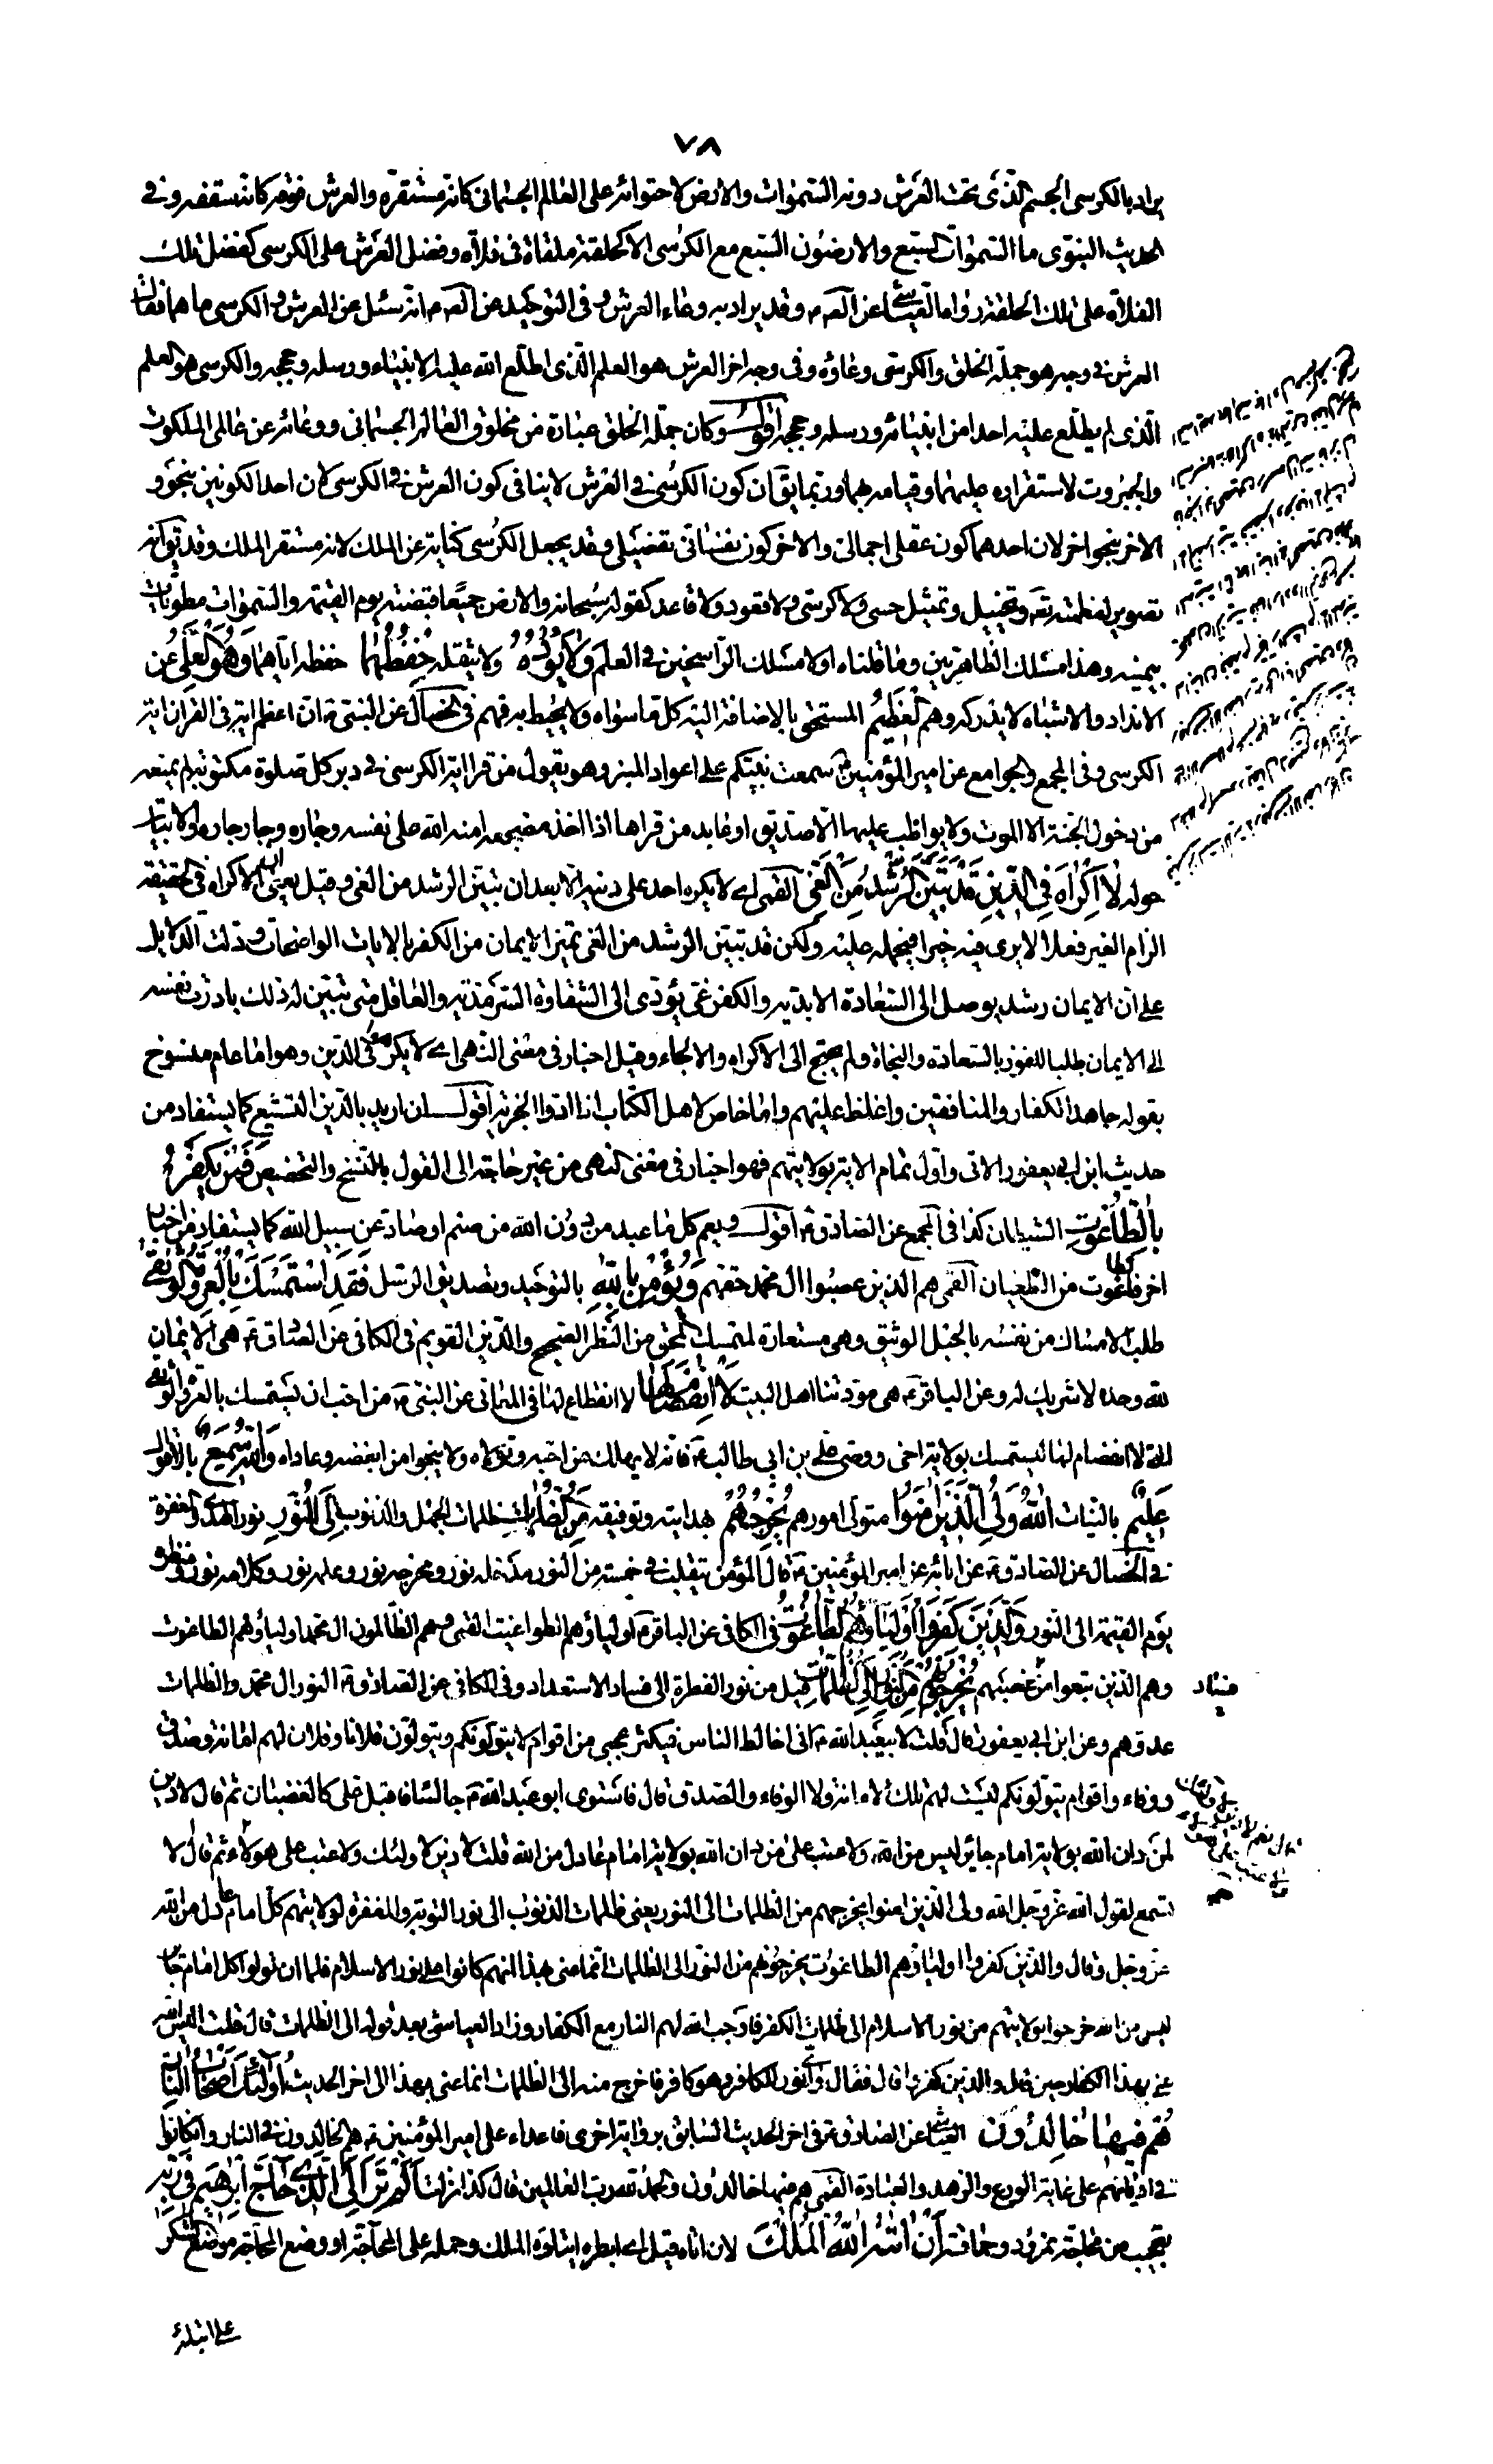 ٧٨
يراد بالكرسي الجسم الذى تحت العرش دونه السموات والارض لاحتوائه على العالم الجسمانى كانه مستقره والعرش فوقه كانه سقفه وفى
الحديث النبوى ما السموات السبع والارضون السبع مع الكرسى الا كحلقة ملقاة فى فلاة وفضل العرش على الكرسى كفضل تلك
الفلاة على تلك الحلقة رواها العياشى عن الصم وقد يراد به وعاء العرش وفى التوحيد عن الصم انه سئل عن العرش والكرسى ما هما فقال
العرش فى وجه هو جملة الخلق والكرسى وعاؤه وفى وجه اخر العرش هو العلم الذى اطلع الله عليه الانبياء ورسله وحججه والكرسى هو العلم
الذى لم يطلع عليه احدا من انبيائه ورسله وحججه اقول وكان جملة الخلق عبارة من مخلوق العالم الجسمانى ووعائه عن عالمى الملكوت
والجبروت لاستقراره عليهما وقيامه بهما وربما يق ان كون الكرسى فى العرش لا ينافى كون العرش فى الكرسى لان احد الكونين بنحو و
الاخر بنحو اخر لان احدهما كون عقلى اجمالى والاخر كون نفسانى تفصيلى وقد يجعل الكرسى كناية عن الملك لانه مستقر الملك وقد يق انه
تصوير لعظمته تع وتخييل وتمثيل حسى ولا كرسى ولا قعود ولا قاعد كقوله سبحانه والارض جميعا قبضته يوم القيمة والسموات مطويات
بيمينه وهذا مسلك الظاهريين وما قلناه اولا مسلك الراسخين فى العلم وَلَا يَؤُدُهُ ولا يثقله حِفْظُهُمَا حفظه اياهما وَهُوَ الْعَلِيُّ عن
الانداد والاشباه لا يدركه وهم الْعَظِيمُ المستحق بالاضافة اليه كل ما سواه ولا يحيط به فهم فى الخصال عن النبى ص ان اعظم اية فى القران اية
الكرسى وفى المجمع والجوامع عن امير المؤمنين ع سمعت نبيكم على اعواد المنبر وهو يقول من قرا اية الكرسى فى دبر كل صلوة مكتوبة لم يمنعه
من دخول الجنة الا الموت ولا يواظب عليها الا صديق او عابد من قراها اذا اخذ مضجعه امنه الله على نفسه وجاره وجار جاره والابيات
حوله لَا إِكْرَاهَ فِي الدِّينِ قَدْ تَبَيَّنَ الرُّشْدُ مِنَ الْغَيِّ القمى اى لا يكره احد على دينه الا بعد ان تبين الرشد من الغى وقيل يعنى ان الاكراه فى الحقيقة
الزام الغير فعلا لا يرى فيه خيرا فيحمله عليه ولكن قد تبين الرشد من الغى تميز الايمان من الكفر بالايات الواضحات ودلت الدلايل
على ان الايمان رشد يوصل الى السعادة الابدية والكفر غى يؤدى الى الشقاوة السرمدية والعاقل متى تبين له ذلك بادرت نفسه
الى الايمان طلبا للفوز بالسعادة والنجاة ولم يحتج الى الاكراه والالجاء وقيل اخبار فى معنى النهى اى لا تكرهوا فى الدين وهو اما عام منسوخ
بقوله جاهد الكفار والمنافقين واغلظ عليهم واما خاص لاهل الكتاب اذا ادوا الجزية اقول ان اريد بالدين التشيع كما يستفاد من
حديث ابن ابى يعفور الاتى واول تمام الاية بولايتهم فهو اخبار فى معنى النهى من غير حاجة الى القول بالنسخ والتخصيص فَمَنْ يَكْفُرْ
بِالطَّاغُوتِ الشيطان كذا فى المجمع عن الصادق ع اقول ويعم كل ما عبد من دون الله من صنم او صاد عن سبيل الله كما يستفاد من اخبار
اخر فالطاغوت من الطغيان القمى هم الذين غصبوا ال محمد حقهم وَيُؤْمِنْ بِاللَّهِ بالتوحيد وتصديق الرسل فَقَدِ اسْتَمْسَكَ بِالْعُرْوَةِ الْوُثْقَى
طلب الامساك من نفسه بالحبل الوثيق وهى مستعارة لمتمسك المحق من النظر الصحيح والدين القويم فى الكافى عن الصادق ع هى الايمان
لله وحده لا شريك له وعن الباقر ع هى مودتنا اهل البيت لَا انْفِصَامَ لَهَا لا انقطاع لها فى المعانى عن النبى ص من احب ان يستمسك بالعروة الوثقى
التى لا انفصام لها فليستمسك بولاية اخى ووصيى على بن ابى طالب ع فانه لا يهلك من احبه وتولاه ولا ينجو من ابغضه وعاداه وَاللَّهُ سَمِيعٌ بالاقوال
عَلِيمٌ بالنيات اللَّهُ وَلِيُّ الَّذِينَ آمَنُوا متولى امورهم يُخْرِجُهُمْ بهدايته وتوفيقه مِنَ الظُّلُمَاتِ ظلمات الجهل والذنوب إِلَى النُّورِ نور الهدى والمغفرة
فى الخصال عن الصادق ع عن ابائه عن امير المؤمنين ع قال المؤمن يتقلب فى خمسة من النور مدخله نور ومخرجه نور وعلمه نور وكلامه نور ومنظره
يوم القيمة الى النور وَالَّذِينَ كَفَرُوا أَوْلِيَاؤُهُمُ الطَّاغُوتُ فى الكافى عن الباقر ع اولياؤهم الطواغيت القمى وهم الظالمون ال محمد اولياؤهم الطاغوت
وهم الذين تبعوا من غصبهم يُخْرِجُونَهُمْ مِنَ النُّورِ إِلَى الظُّلُمَاتِ قيل من نور الفطرة الى فساد الاستعداد وفى الكافى عن الصادق ع النور ال محمد والظلمات
عدوهم وعن ابن ابى يعفور قال قلت لابيعبد الله ع انى اخالط الناس فيكثر عجبى من اقوام لا يتولونكم ويتولون فلانا وفلانا لهم امانة وصدق
ووفاء واقوام يتولونكم ليست لهم تلك الامانة ولا الوفاء والصدق قال فاستوى ابو عبد الله ع جالسا فاقبل على كالغضبان ثم قال لا دين
لمن دان الله بولاية امام جائر ليس من الله ولا عتب على من دان الله بولاية امام عادل من الله قلت لا دين لاولئك ولا عتب على هؤلاء ثم قال لا
تسمع لقول الله عز وجل الله ولى الذين امنوا يخرجهم من الظلمات الى النور يعنى ظلمات الذنوب الى نور التوبة والمغفرة لولايتهم كل امام عادل من الله
عز وجل وقال والذين كفروا اولياؤهم الطاغوت يخرجونهم من النور الى الظلمات انما عنى بهذا انهم كانوا على نور الاسلام فلما ان تولوا كل امام جائر
ليس من الله خرجوا بولايتهم من نور الاسلام الى ظلمات الكفر فاوجب الله لهم النار مع الكفار وزاد العياشى بعد قوله الى الظلمات قال قلت اليس الله
عنى بهذا الكفار حين قال والذين كفروا قال فقال واى نور للكافر وهو كافر فاخرج منه الى الظلمات انما عنى بهذا الى اخر الحديث أُولَئِكَ أَصْحَابُ النَّارِ
هُمْ فِيهَا خَالِدُونَ العياشى عن الصادق ع فى اخر الحديث السابق برواية اخرى فاعداء على امير المؤمنين ع هم الخالدون فى النار وان كانوا
فى اديانهم على غاية الورع والزهد والعبادة القمى هم فيها خالدون والحمد لله رب العالمين قال كذا نزلت أَلَمْ تَرَ إِلَى الَّذِي حَاجَّ إِبْرَاهِيمَ فِي رَبِّهِ
تعجب من محاجة نمرود وحماقته أَنْ آتَاهُ اللَّهُ الْمُلْكَ لان اتاه قيل اى ابطره ايتاؤه الملك وحمله على المحاجة او وضع المحاجة موضع الشكر
على ايتائه